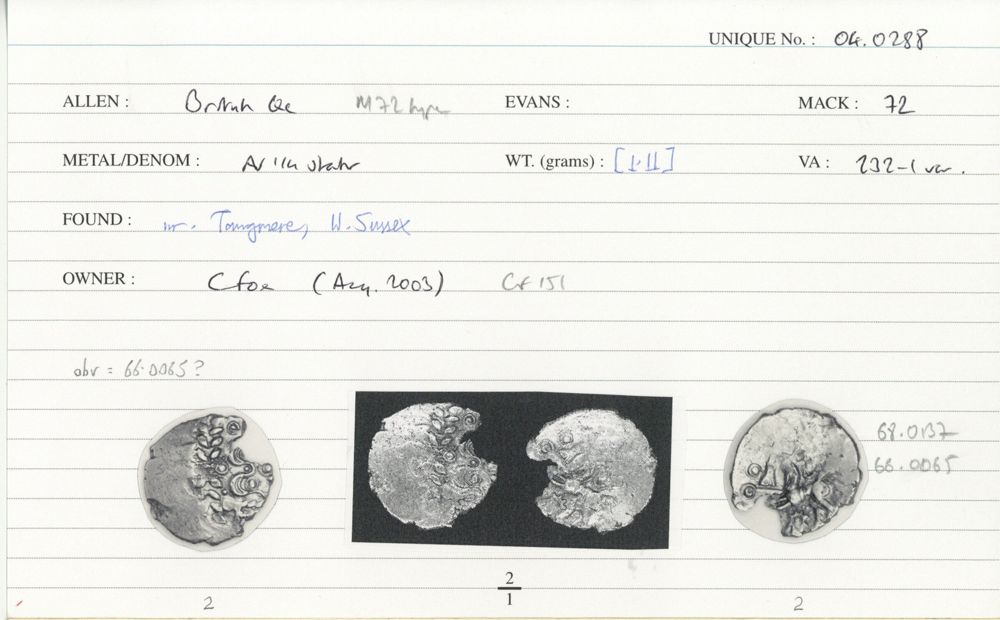 UNIQUE No. : 04.0288
ALLEN : British Qc M72 type EVANS : MACK : 72
METAL/DENOM : AV 1/4 stater WT. (grams) : [1.11] VA : 232-1 var.
FOUND : nr. Tangmere, W. Sussex
OWNER : C foe (Acq. 2003) CF 151
obv = 66.0065?
68.0137
66.0065
2
1
2 2